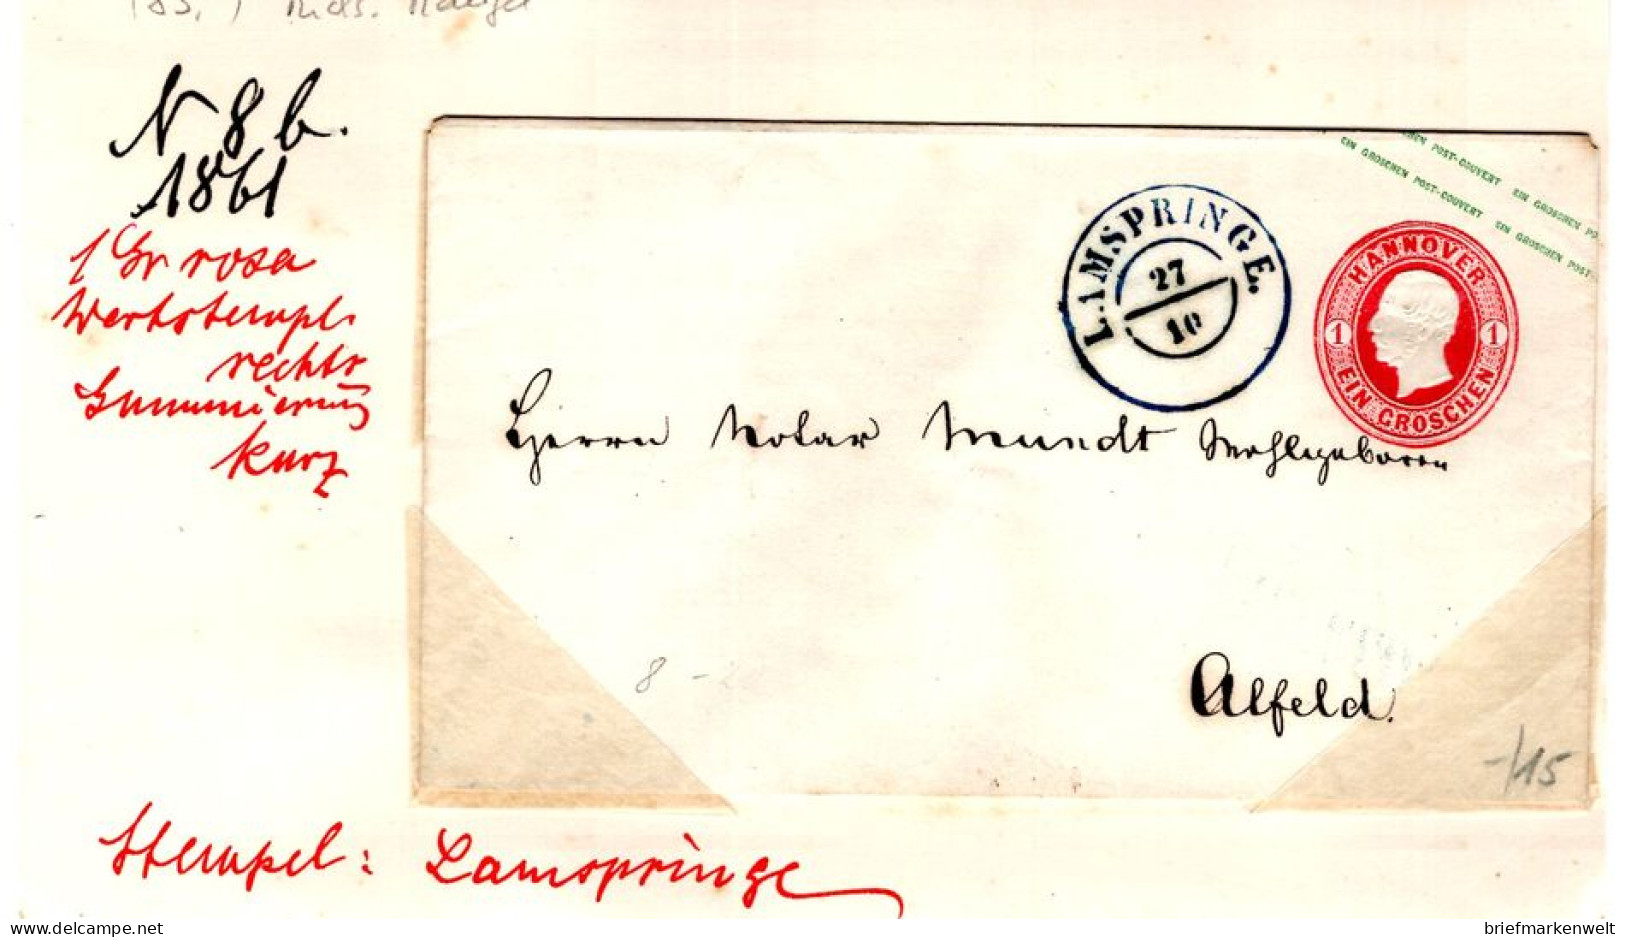 N 8 b.
1861
1 Gr rosa
Wertstempel
rechts
Gummierung
kurz
EIN GROSCHEN POST-COUVERT EIN GROSCHEN POST-
POST-COUVERT EIN GROSCHEN PO
LAMSPRINGE.
27
10
HANNOVER
1 1
EIN GROSCHEN
Herrn Notar Mundt Wohlgeboren
Alfeld.
8 -
-/15
Stempel: Lamspringe
www.delcampe.net
briefmarkenwelt